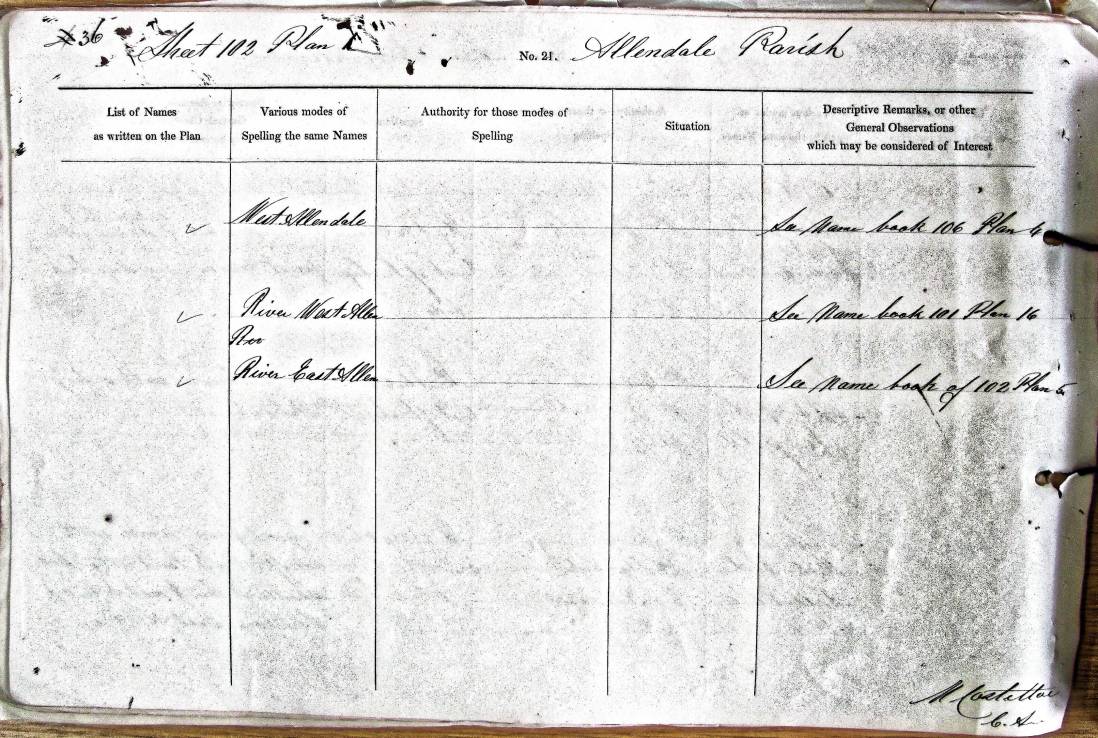 36 Sheet 102 Plan No. 21. Allendale Parish
List of Names
as written on the Plan
Various modes of
Spelling the same Names
Authority for those modes of
Spelling
Situation
Descriptive Remarks, or other
General Observations
which may be considered of Interest
West Allendale See Name book 106 Plan
River West Allen See Name book 101 Plan 16
Riv
River East Allen See Name book of 102 Plan 5
C.A.